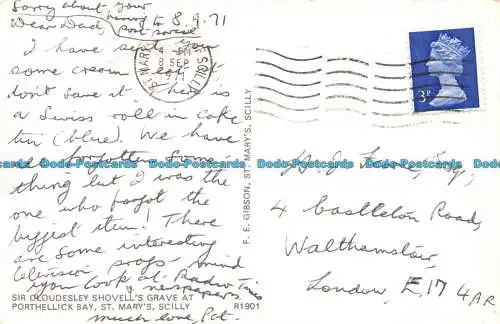 Sorry about your
having to
post parcel
8.9.71
Dear Dad,
I have sent you
some cream eat it
don't save it here is
a Swiss roll in cake
tin (blue). We have
all forgotten some
thing but I was the
one who forgot the
biggest item! There
are some interesting
television progs - mind
you look at Radio Times
& newspapers.
much love, Pat.
SIR CLOUDESLEY SHOVELL'S GRAVE AT
PORTHELLICK BAY, ST. MARY'S, SCILLY
R1901
F. E. GIBSON, ST. MARY'S, SCILLY
ST MARY'S
SCILLY
PM
8 SEP
1971
3P
Esq.,
4 Castleton Road,
Walthamstow,
London, E.17 4AR
Dodo-Postcards Dodo-Postcards Dodo-Postcards Dodo-Postcards Dodo-Postcards Dodo-Postcards